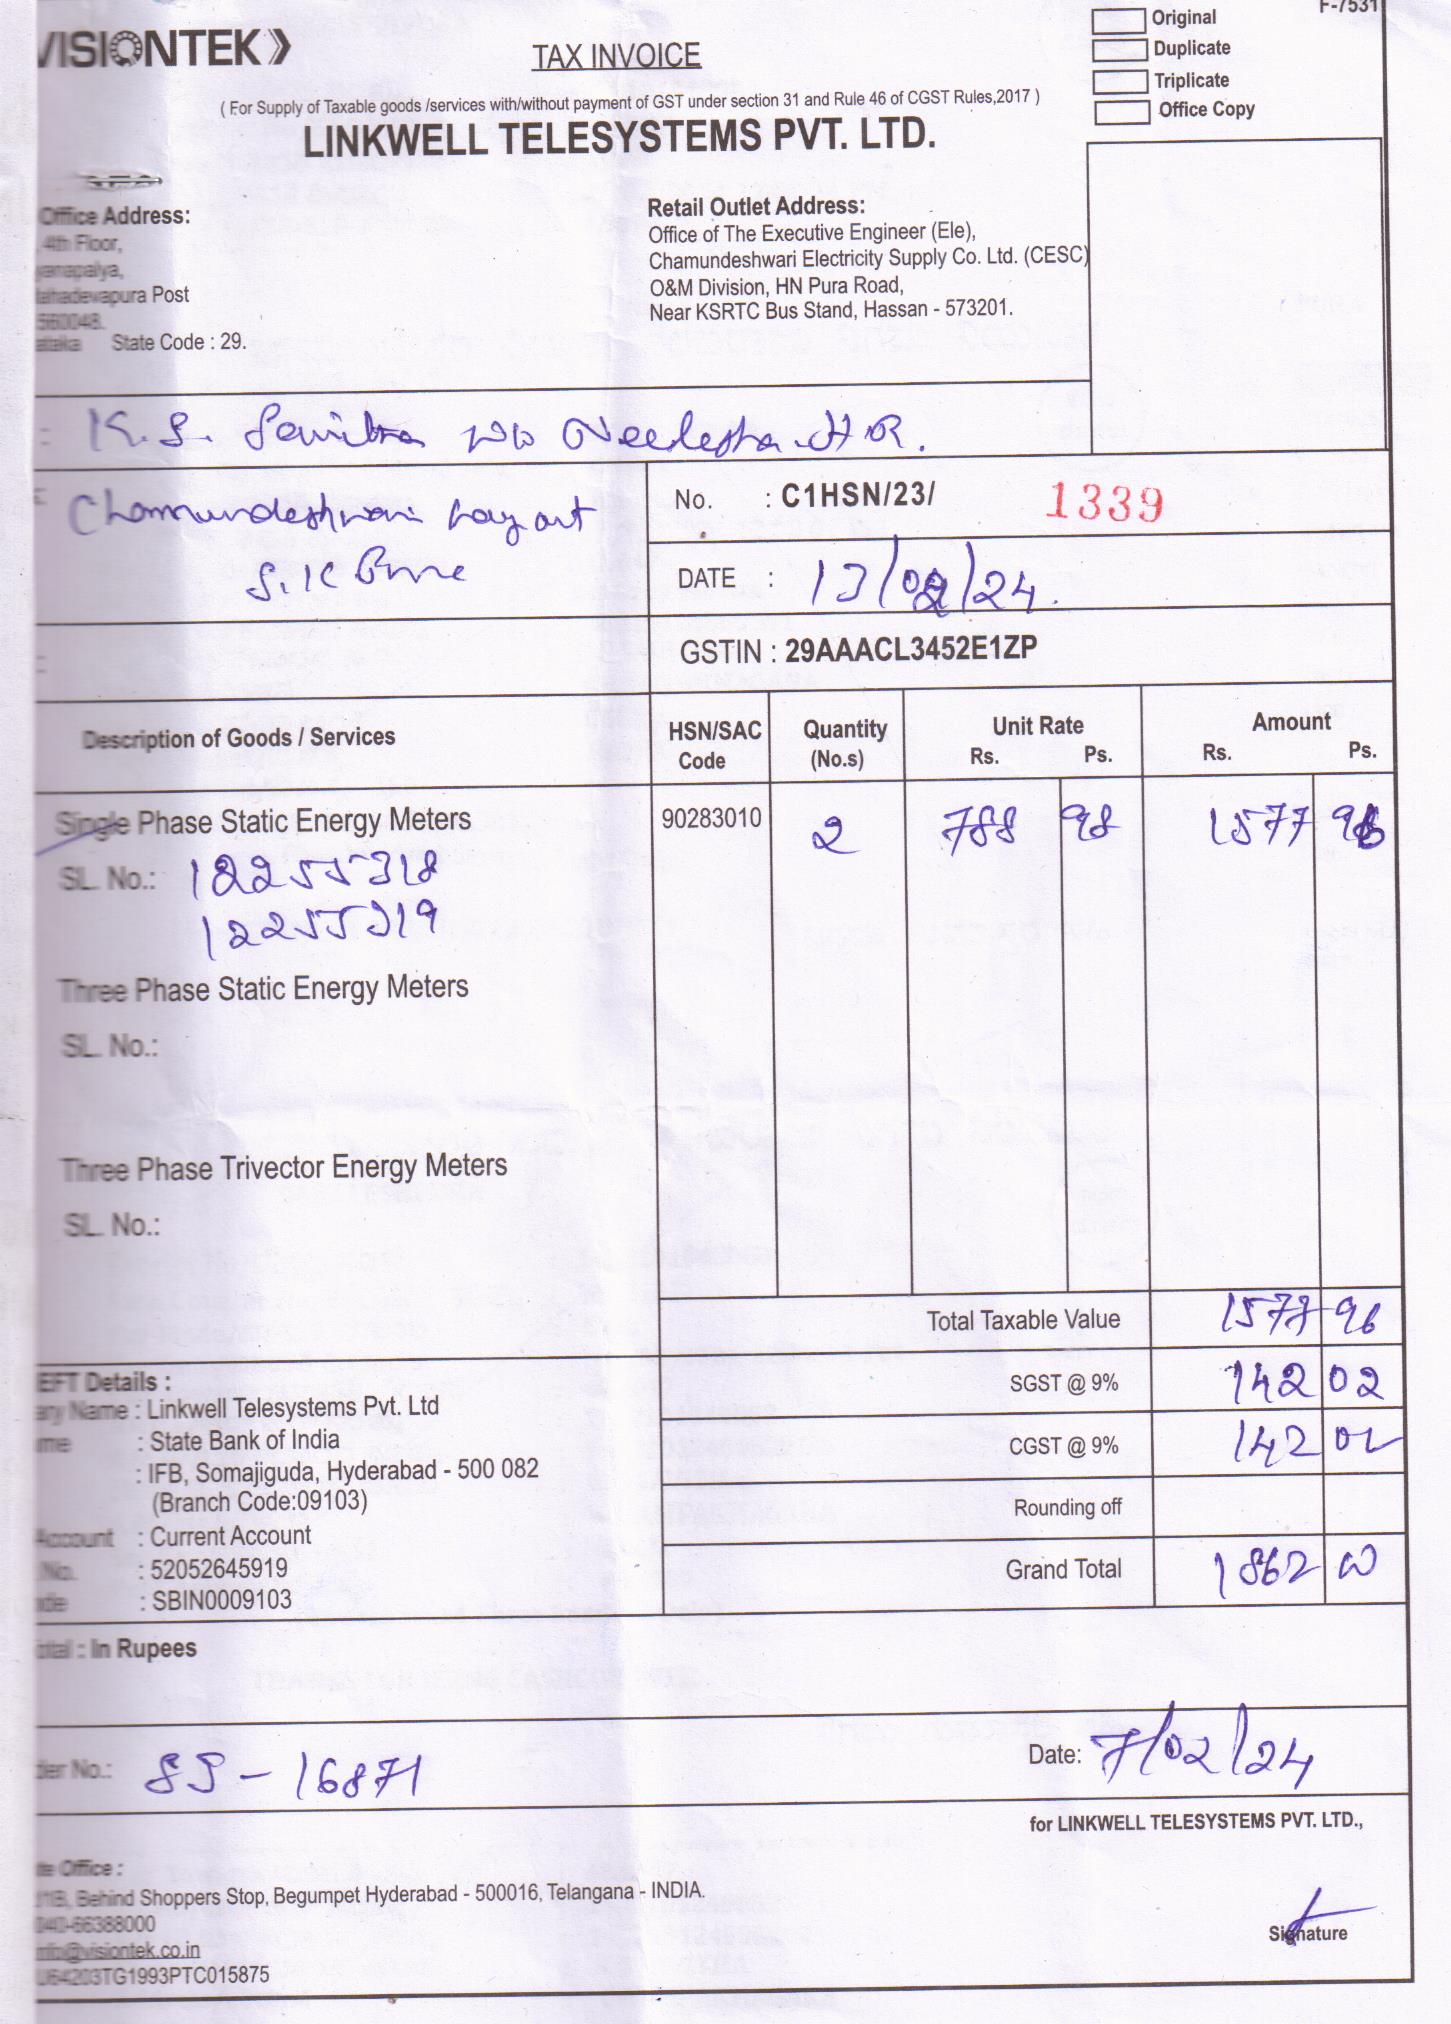 VISIONTEK
TAX INVOICE
Original
Duplicate
Triplicate
Office Copy
F-7531
( For Supply of Taxable goods /services with/without payment of GST under section 31 and Rule 46 of CGST Rules,2017 )
LINKWELL TELESYSTEMS PVT. LTD.
Office Address:
4th Floor,
Post
560048.
State Code : 29.
Retail Outlet Address:
Office of The Executive Engineer (Ele),
Chamundeshwari Electricity Supply Co. Ltd. (CESC)
O&M Division, HN Pura Road,
Near KSRTC Bus Stand, Hassan - 573201.
: K. S.
Chamundeshwari Layout
No. : C1HSN/23/ 1339
DATE : 13/02/24.
GSTIN : 29AAACL3452E1ZP
Description of Goods / Services HSN/SAC Code Quantity (No.s) Unit Rate Rs. Ps. Amount Rs. Ps.
Single Phase Static Energy Meters 90283010 2 788 98 1577 96
SL. No.: 12255318
12255319
Three Phase Static Energy Meters
SL. No.:
Three Phase Trivector Energy Meters
SL. No.:
Total Taxable Value 1577 96
SGST @ 9% 142 02
CGST @ 9% 142 02
Rounding off
Grand Total 1862 00
EFT Details :
Name : Linkwell Telesystems Pvt. Ltd
: State Bank of India
: IFB, Somajiguda, Hyderabad - 500 082
(Branch Code:09103)
Account : Current Account
No. : 52052645919
: SBIN0009103
: In Rupees
No.: SS - 16871
Date: 7/02/24
for LINKWELL TELESYSTEMS PVT. LTD.,
Office :
Behind Shoppers Stop, Begumpet Hyderabad - 500016, Telangana - INDIA.
040-66388000
info@visiontek.co.in
U64203TG1993PTC015875
Signature